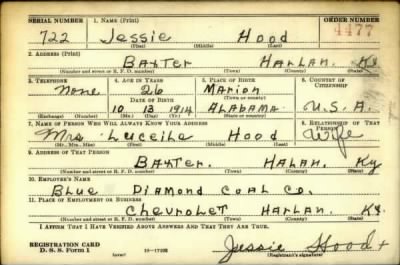 SERIAL NUMBER 1. NAME (Print) ORDER NUMBER
722 Jessie Hood 4477
(First) (Middle) (Last)
2. ADDRESS (Print)
BAXTER HARLAN. Ky
(Number and street or R. F. D. number) (Town) (County) (State)
3. TELEPHONE 4. AGE IN YEARS 5. PLACE OF BIRTH 6. COUNTRY OF CITIZENSHIP
None 26 Marion
DATE OF BIRTH (Town or county)
10 13 1914 ALABAMA U.S.A.
(Exchange) (Number) (Mo.) (Day) (Yr.) (State or country)
7. NAME OF PERSON WHO WILL ALWAYS KNOW YOUR ADDRESS 8. RELATIONSHIP OF THAT PERSON
Mrs Luceila Hood Wife
(Mr., Mrs., Miss) (First) (Middle) (Last)
9. ADDRESS OF THAT PERSON
BAXTER. HALAN. Ky
(Number and street or R. F. D. number) (Town) (County) (State)
10. EMPLOYER'S NAME
BLUE DIAMOND COAL CO.
11. PLACE OF EMPLOYMENT OR BUSINESS
CHEVROLET HARLAN. Ky.
(Number and street or R. F. D. number) (Town) (County) (State)
I AFFIRM THAT I HAVE VERIFIED ABOVE ANSWERS AND THAT THEY ARE TRUE.
REGISTRATION CARD
D. S. S. Form 1 (over) Jessie Hood +
(Registrant's signature)